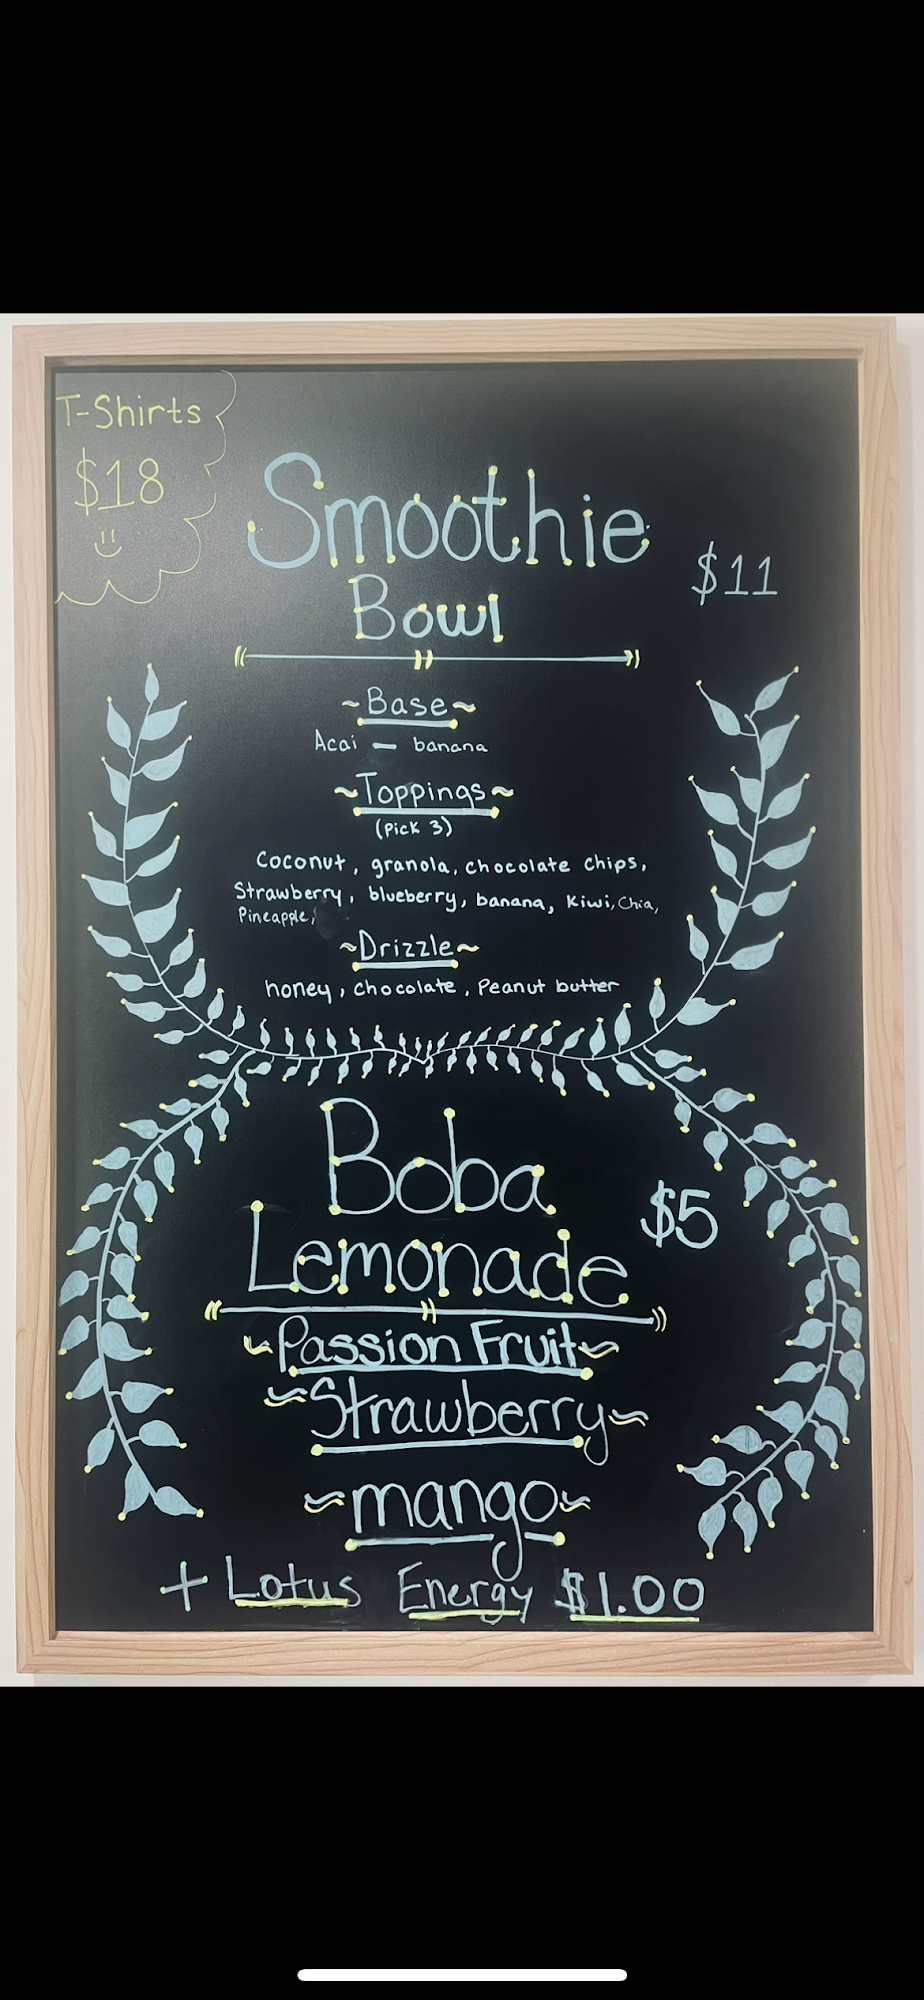 T-Shirts
$18
Smoothie
$11
Bowl
~Base~
Acai — banana
~Toppings~
(Pick 3)
Coconut, granola, chocolate chips,
Strawberry, blueberry, banana, Kiwi, Chia,
Pineapple,
~Drizzle~
honey, chocolate, Peanut butter
Boba
$5
Lemonade
~Passion Fruit~
~Strawberry~
~mango~
+ Lotus Energy $1.00